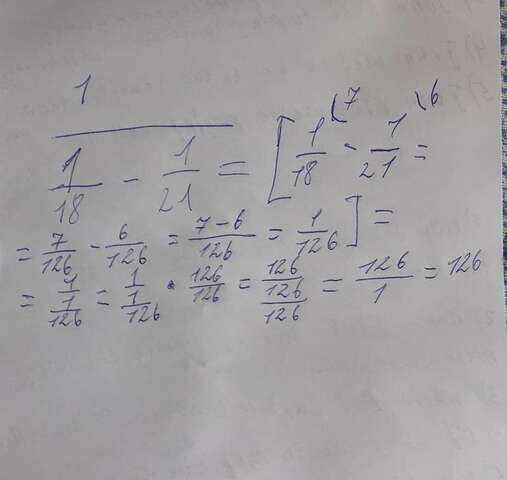 1/(1/18 - 1/21) = [1/18 \7 - 1/21 \6 =
= 7/126 - 6/126 = (7-6)/126 = 1/126] =
= 1/(1/126) = 1/(1/126) · 126/126 = 126/(126/126) = 126/1 = 126